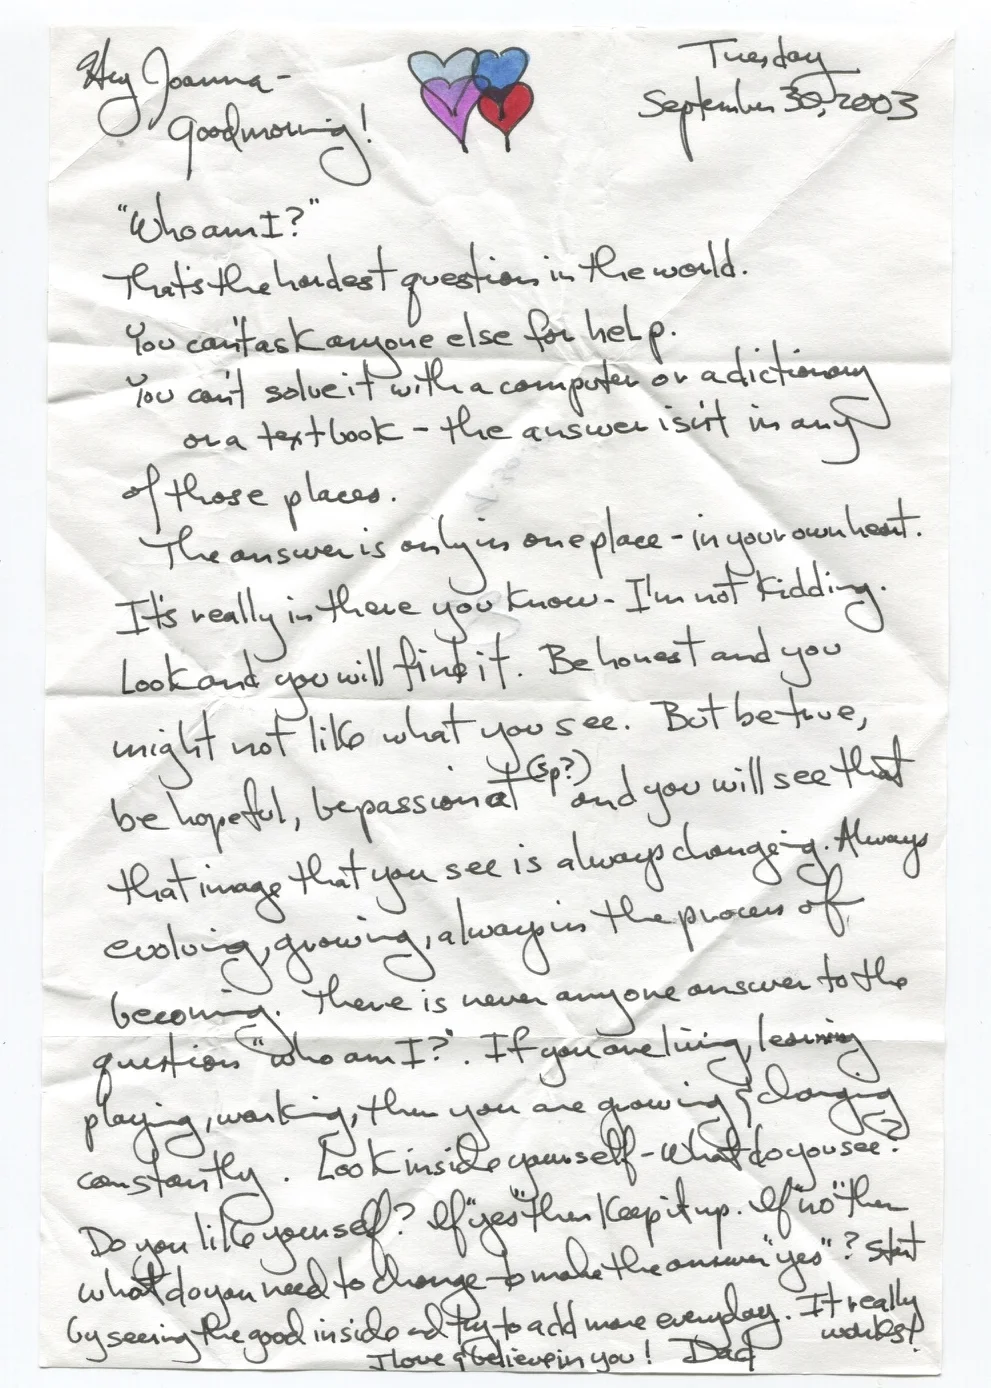 Hey Joanna-
Tuesday
September 30, 2003
Good morning!
"Who am I?"
That's the hardest question in the world.
You can't ask anyone else for help.
You can't solve it with a computer or a dictionary
or a textbook - the answer isn't in any
of those places.
The answer is only in one place - in your own heart.
It's really in there you know - I'm not kidding.
Look and you will find it. Be honest and you
might not like what you see. But be true,
be hopeful, be passionat (sp?) and you will see that
that image that you see is always changing. Always
evolving, growing, always in the process of
becoming. There is never any one answer to the
question "who am I?". If you are living, learning
playing, working, then you are growing & changing
constantly. Look inside yourself - what do you see?
Do you like yourself? If "yes" then keep it up. If "no" then
what do you need to change to make the answer "yes"? Start
by seeing the good inside and try to add more everyday. It really
works!
I love & believe in you! Dad